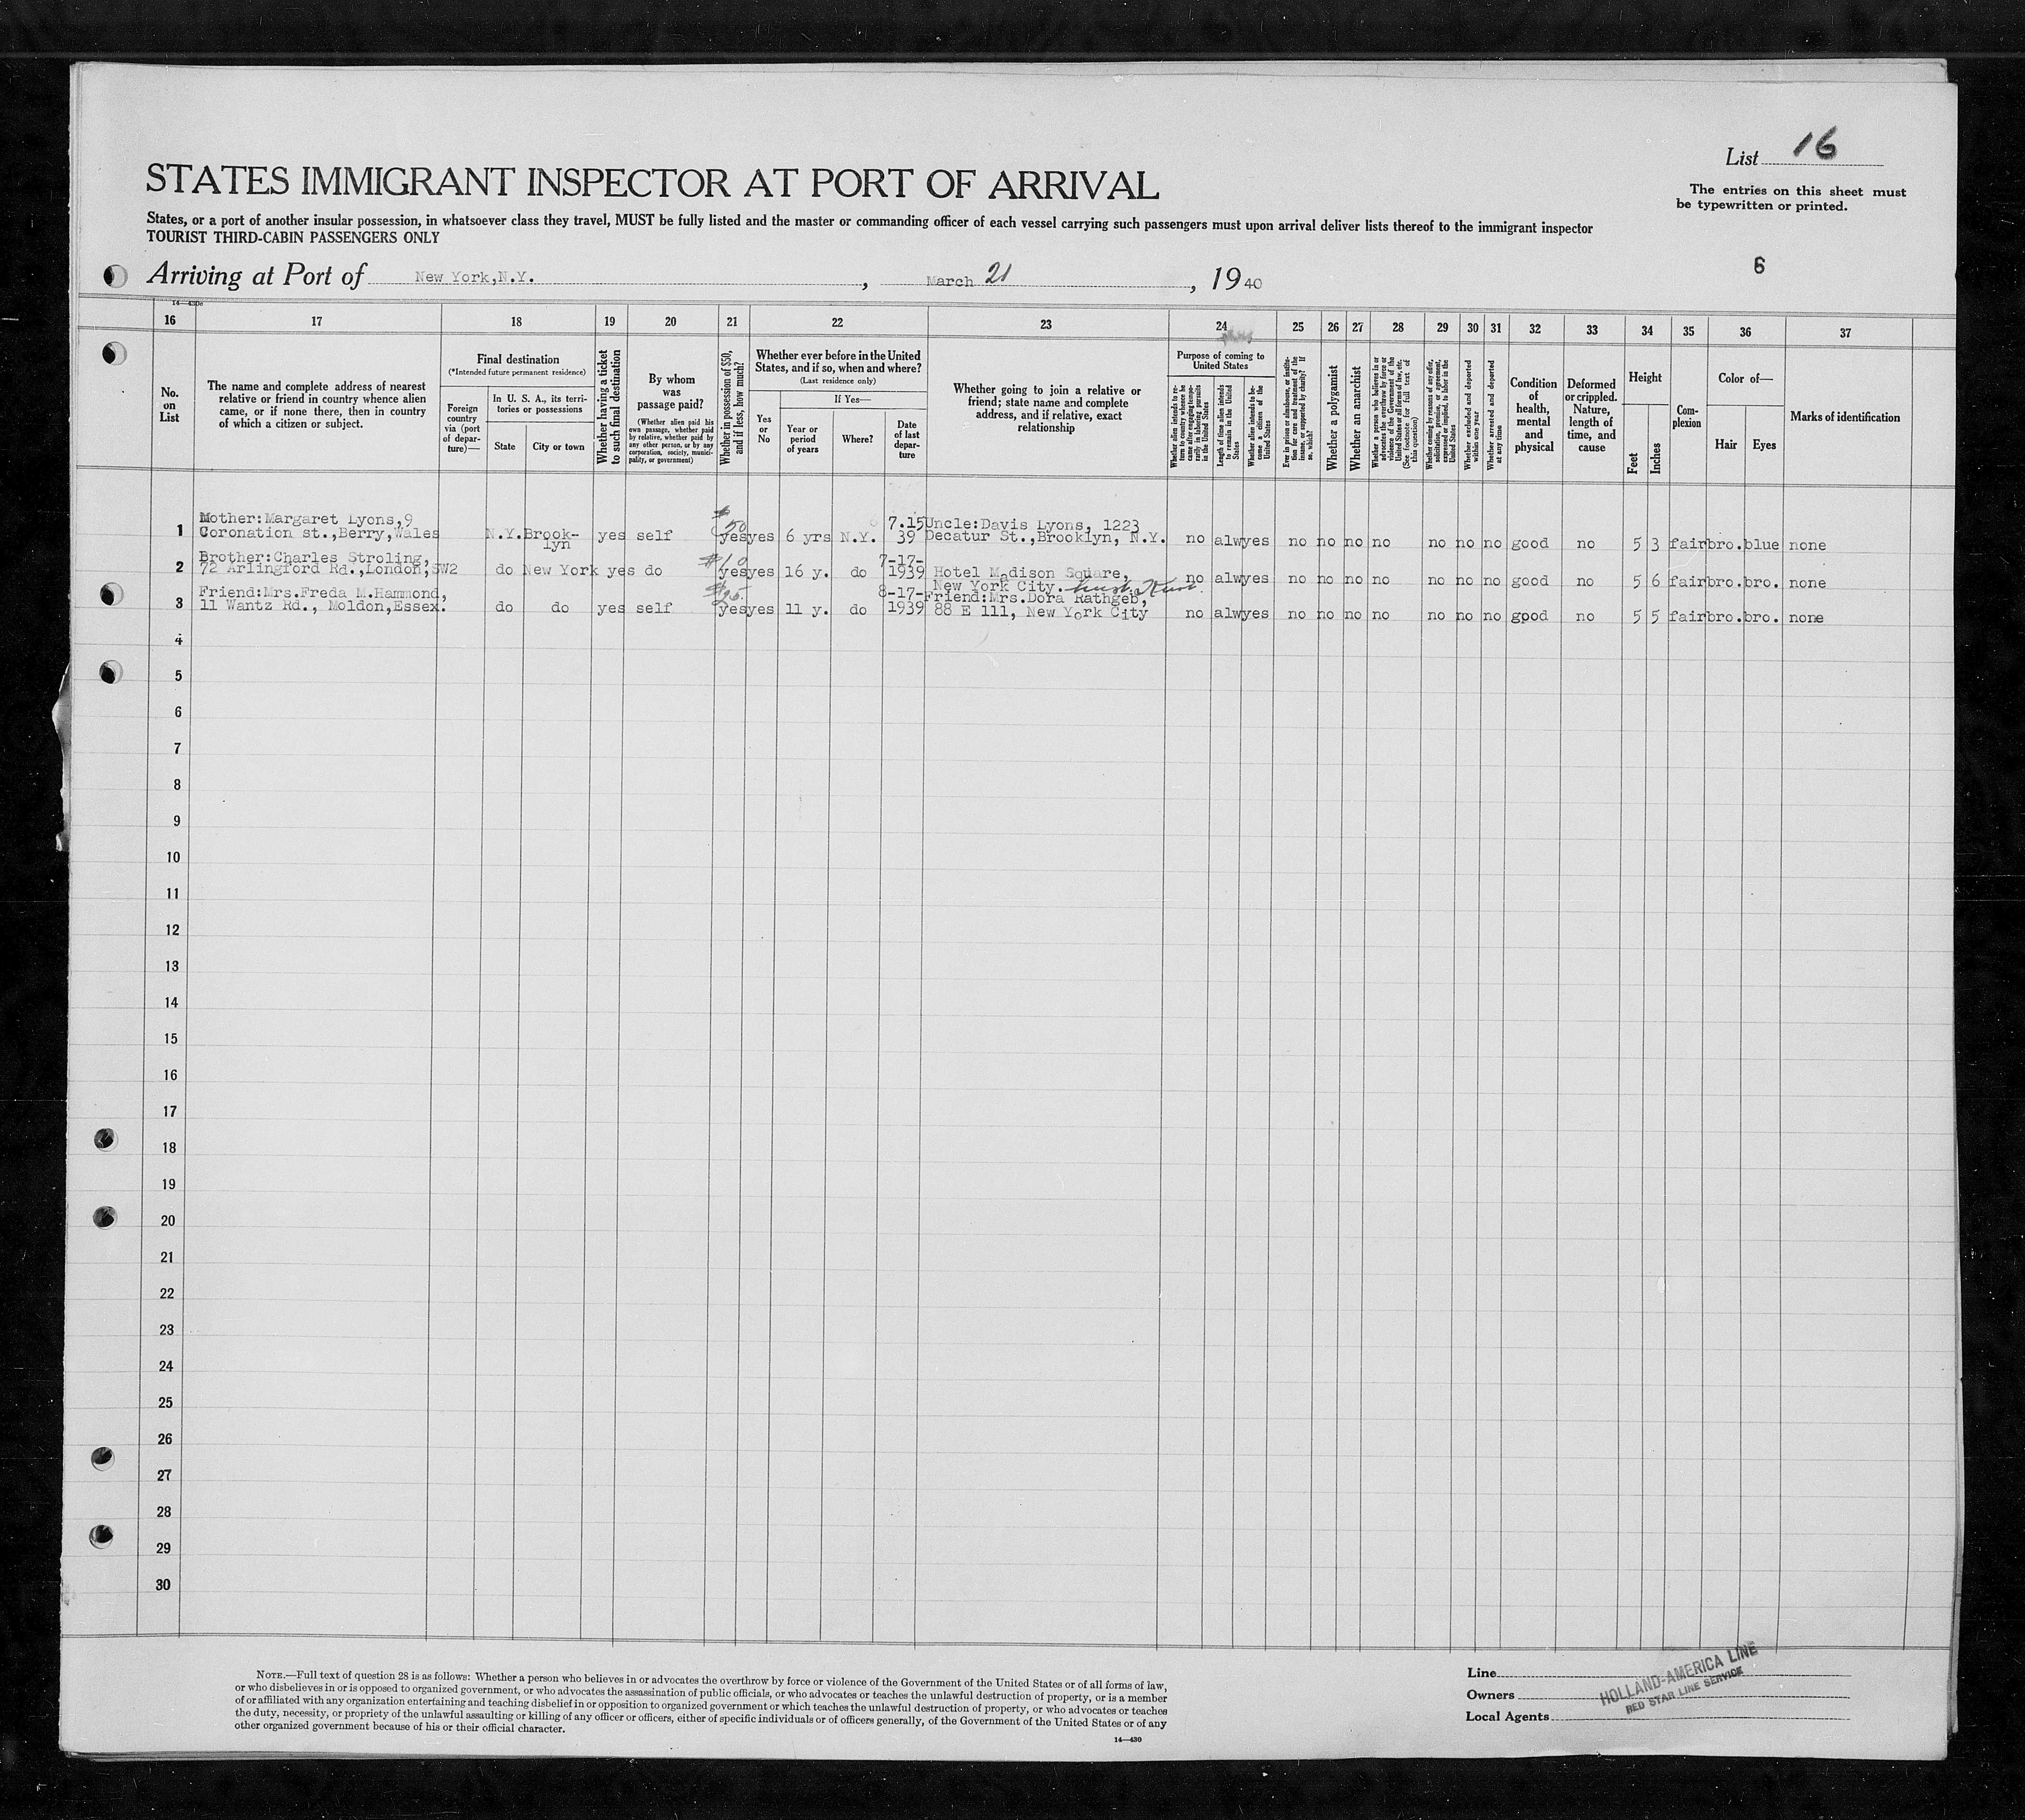 List 16
STATES IMMIGRANT INSPECTOR AT PORT OF ARRIVAL
The entries on this sheet must
be typewritten or printed.
States, or a port of another insular possession, in whatsoever class they travel, MUST be fully listed and the master or commanding officer of each vessel carrying such passengers must upon arrival deliver lists thereof to the immigrant inspector
TOURIST THIRD-CABIN PASSENGERS ONLY
6
Arriving at Port of New York,N.Y., March 21, 1940
16 17 18 19 20 21 22 23 24 25 26 27 28 29 30 31 32 33 34 35 36 37
No.
on
List
The name and complete address of nearest
relative or friend in country whence alien
came, or if none there, then in country
of which a citizen or subject.
Final destination
(*Intended future permanent residence)
Foreign
country
via (port
of depar-
ture)—
In U. S. A., its terri-
tories or possessions
State
City or town
Whether having a ticket
to such final destination
By whom
was
passage paid?
(Whether alien paid his
own passage, whether paid
by relative, whether paid by
any other person, or by any
corporation, society, munici-
pality, or government)
Whether in possession of $50,
and if less, how much?
Whether ever before in the United
States, and if so, when and where?
(Last residence only)
Yes
or
No
If Yes—
Year or
period
of years
Where?
Date
of last
depar-
ture
Whether going to join a relative or
friend; state name and complete
address, and if relative, exact
relationship
Purpose of coming to
United States
Whether alien intends to re-
turn to country whence he
came after engaging tempo-
rarily in laboring pursuits
in the United States
Length of time alien intends
to remain in the United
States
Whether alien intends to be-
come a citizen of the
United States
Ever in prison or almshouse, or institu-
tion for care and treatment of the
insane, or supported by charity? If
so, which?
Whether a polygamist
Whether an anarchist
Whether a person who believes in or
advocates the overthrow by force or
violence of the Government of the
United States or all forms of law, etc.
(See footnote for full text of
this question)
Whether coming by reasons of any offer,
solicitation, promise, or agreement,
expressed or implied, to labor in the
United States
Whether excluded and deported
within one year
Whether arrested and deported
at any time
Condition
of
health,
mental
and
physical
Deformed
or crippled.
Nature,
length of
time, and
cause
Height
Feet
Inches
Com-
plexion
Color of—
Hair
Eyes
Marks of identification
Mother:Margaret Lyons,9
1 Coronation st.,Berry,Wales N.Y. Brook-
lyn yes self $50 yes yes 6 yrs N.Y. 7.15
39 Uncle:Davis Lyons, 1223
Decatur St.,Brooklyn, N.Y. no alw yes no no no no no no no good no 5 3 fair bro. blue none
Brother:Charles Stroling,
2 72 Arlingford Rd.,London,SW2 do New York yes do $10 yes yes 16 y. do 7-17-
1939 Hotel Madison Square,
New York City. no alw yes no no no no no no no good no 5 6 fair bro. bro. none
Friend:Mrs.Freda M.Hammond,
3 11 Wantz Rd., Moldon,Essex. do do yes self yes yes 11 y. do 8-17-
1939 Friend:Mrs.Dora Rathgeb,
88 E 111, New York City no alw yes no no no no no no no good no 5 5 fair bro. bro. none
4
5
6
7
8
9
10
11
12
13
14
15
16
17
18
19
20
21
22
23
24
25
26
27
28
29
30
NOTE.—Full text of question 28 is as follows: Whether a person who believes in or advocates the overthrow by force or violence of the Government of the United States or of all forms of law,
or who disbelieves in or is opposed to organized government, or who advocates the assassination of public officials, or who advocates or teaches the unlawful destruction of property, or is a member
of or affiliated with any organization entertaining and teaching disbelief in or opposition to organized government or which teaches the unlawful destruction of property, or who advocates or teaches
the duty, necessity, or propriety of the unlawful assaulting or killing of any officer or officers, either of specific individuals or of officers generally, of the Government of the United States or of any
other organized government because of his or their official character.
14—430
Line
Owners
Local Agents
HOLLAND-AMERICA LINE
RED STAR LINE SERVICE